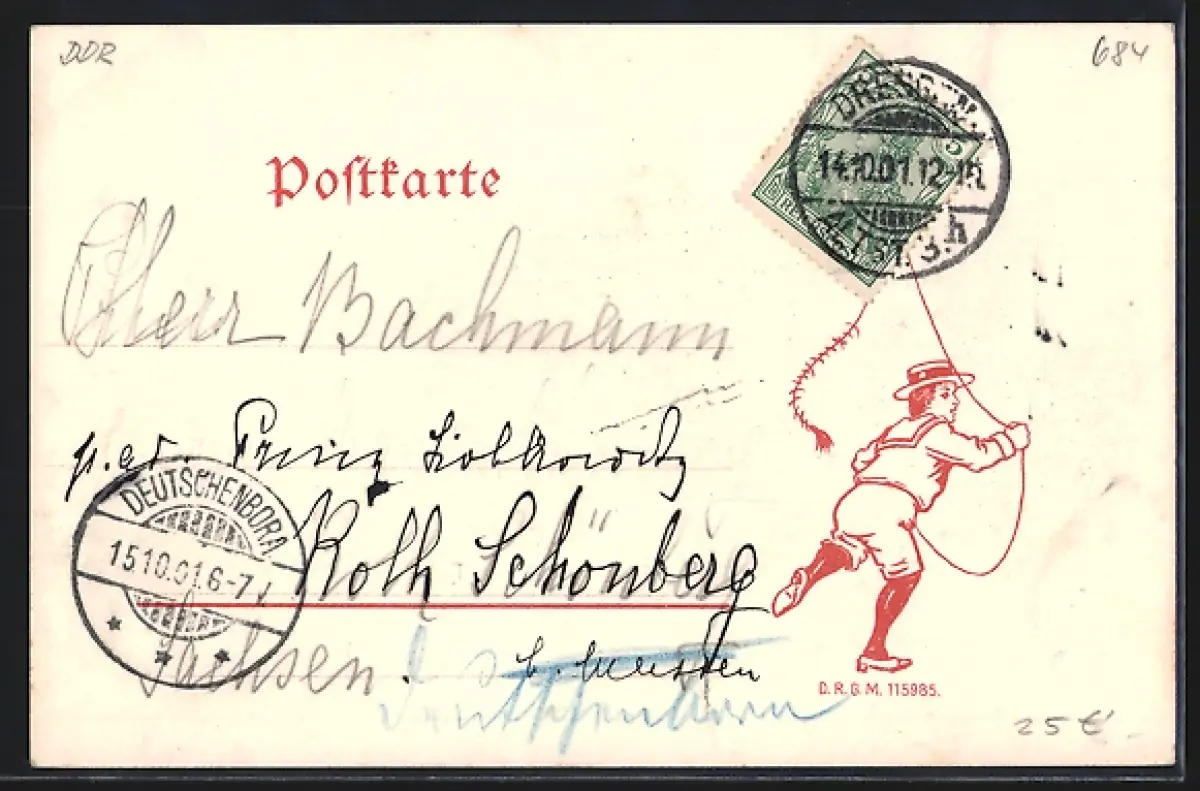 DDR
684
Postkarte
14.10.01.12-1N.
ALTST. 3. h
Herr Bachmann
Prinz Lobkowitz
DEUTSCHENBORA
15 10 01. 6-7
Roth Schönberg
Sachsen.
b. Meissen
Deutschenbora
D. R. G. M. 115985.
25 €